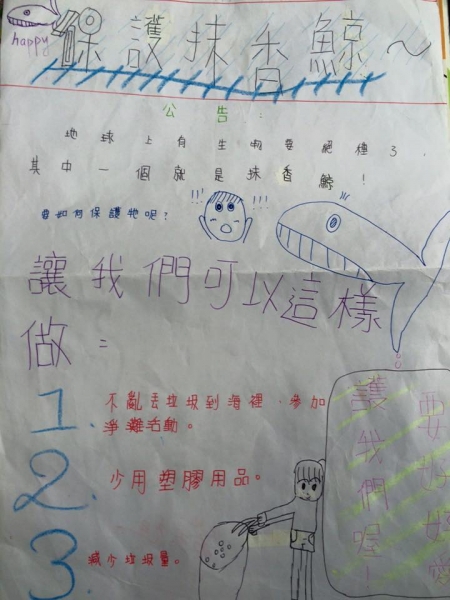 happy
保護抹香鯨～
公告：
地球上有生物要絕種了，
其中一個就是抹香鯨！
!!! !!!
要如何保護牠呢？
讓我們可以這樣
做：
1. 不亂丟垃圾到海裡、參加
淨灘活動。
2. 少用塑膠用品。
3. 減少垃圾量。
要好好愛
護我們喔！